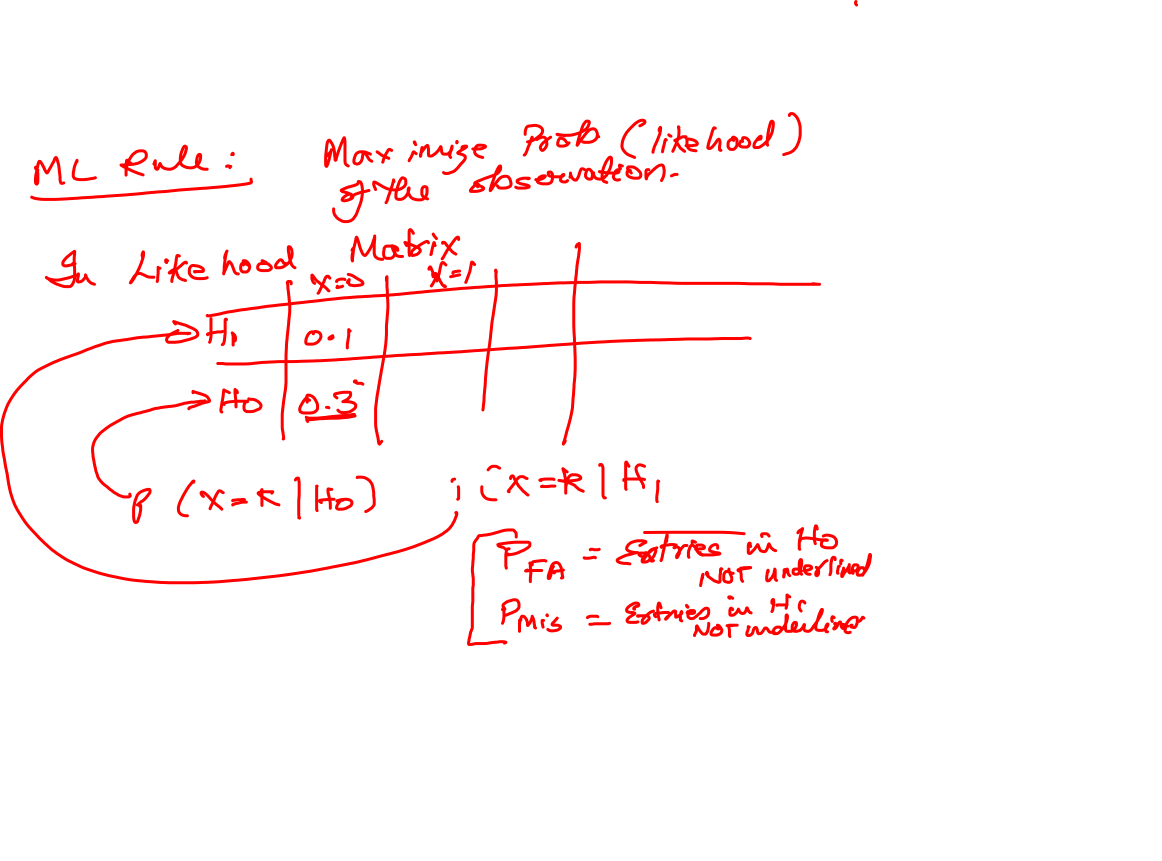 ML Rule: Maximize Prob (likehood)
of the observation.
In Likehood Matrix
X=0 X=1
H1 0.1
H0 0.3
P (X=K | H0) ; (X=K | H1
PFA = Entries in H0
NOT underlined
PMis = Entries in H1
NOT underlined